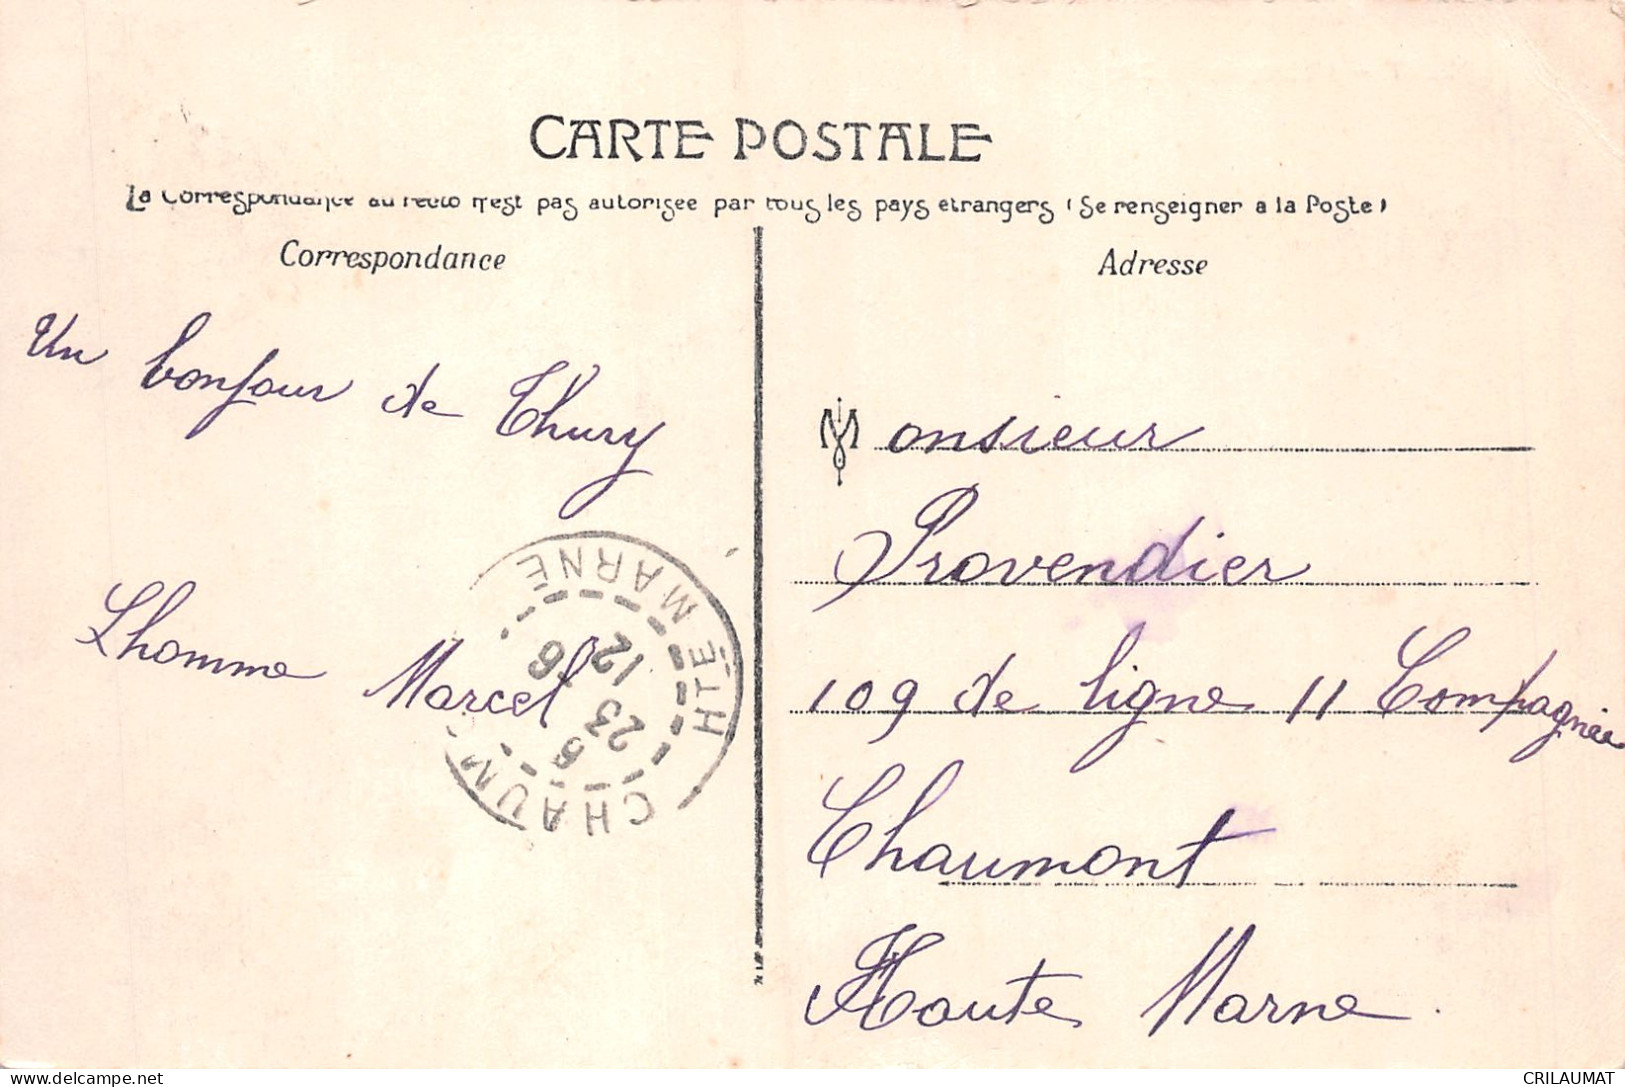 CARTE POSTALE
La Correspondance au recto n'est pas autorisee par tous les pays etrangers (Se renseigner a la Poste)
Correspondance
Un bonjour de Thury
Lhomme Marcel
CHAUM
HTE MARNE
6
12
23
5
Adresse
Monsieur
Provendier
109 de ligne 11 Compagnie
Chaumont
Haute Marne.
CRILAUMAT